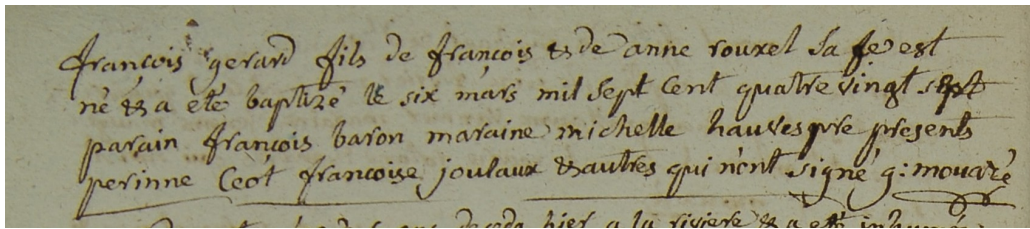 françois gerard fils de françois & de anne rouxel sa fe est
né & a eté baptizé le six mars mil sept cent quatre vingt sept
parain françois baron maraine michelle hauvespre presents
perinne Ceot françoise joulaux & autres qui n'ont signé g: mouazé
hier a la riviere & a eté inhumé